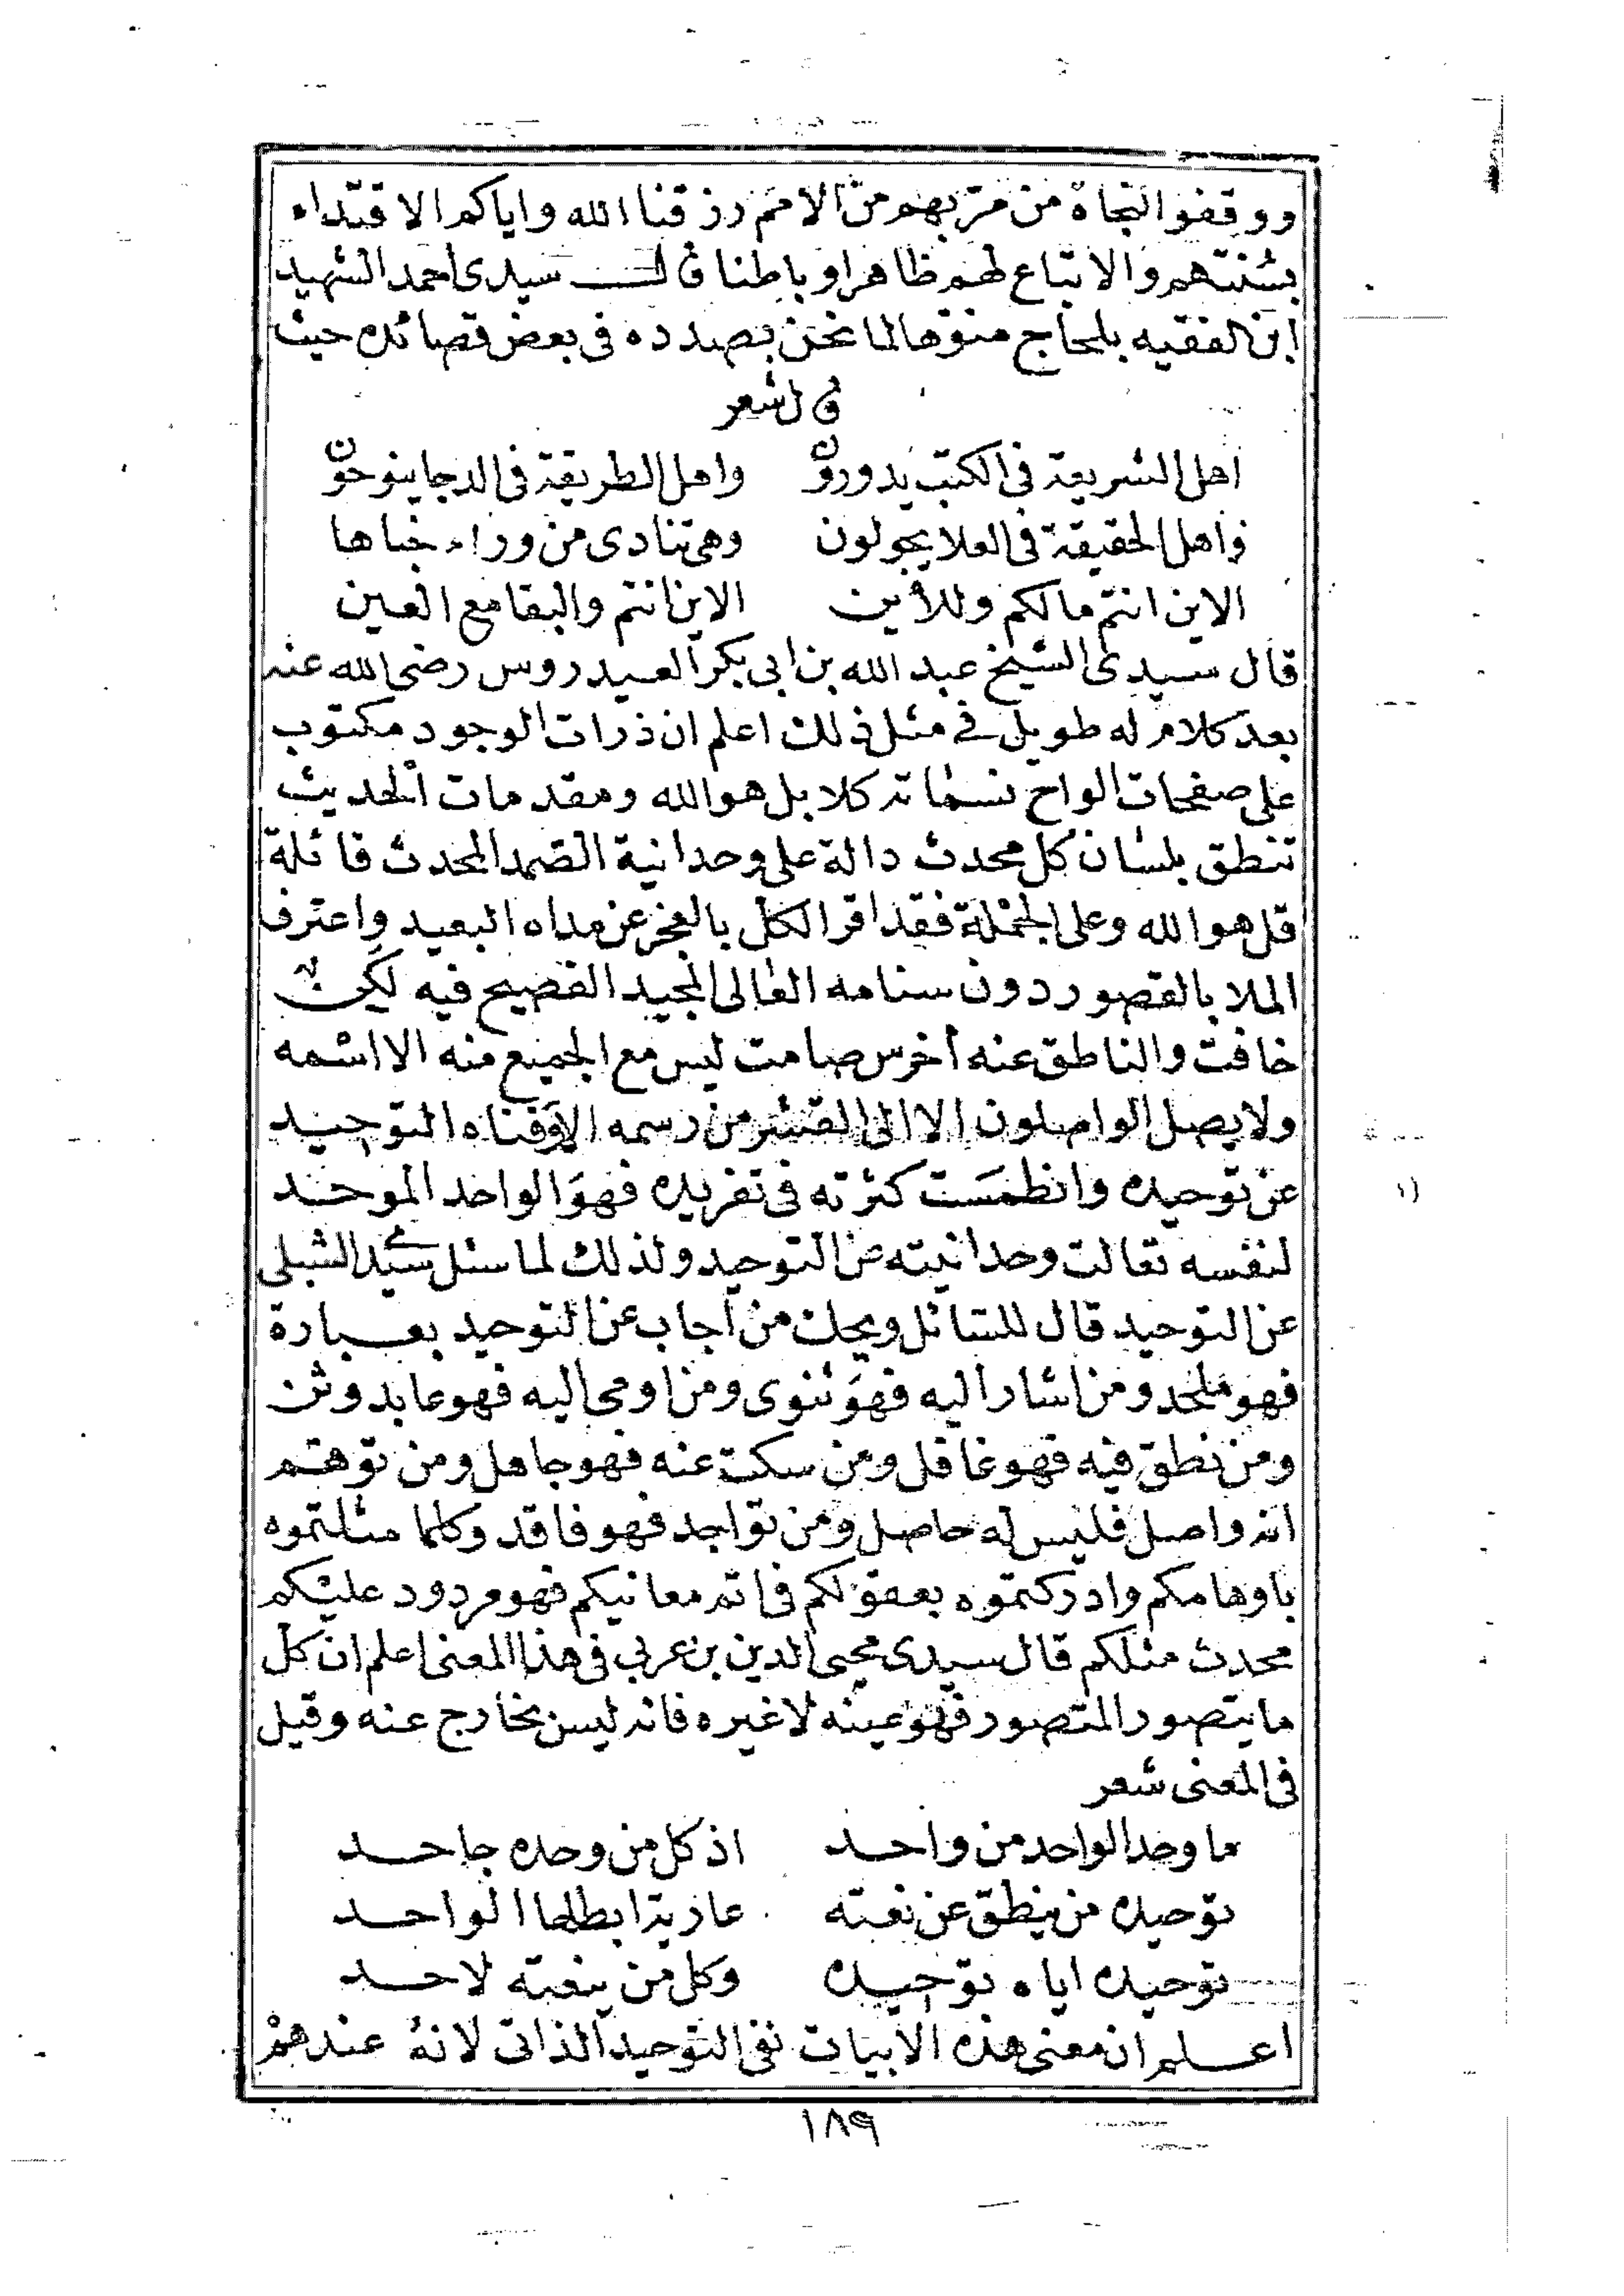 ووقفوا النجاة من مر بهم من الامم رزقنا الله واياكم الاقتداء
بسنتهم والاتباع لهم ظاهرا وباطنا قال سيدى احمد الشهيد
ابن الفقيه بلحاج منوها لما نحن بصدده فى بعض قصائده حيث
قال شعر
اهل الشريعة فى الكتب يدورون واهل الطريقة فى الدجا ينوحون
واهل الحقيقة فى العلا يجولون وهى تنادى من وراء خباها
الاين انتم مالكم وللأين الاين انتم والبقا مع العين
قال سيدى الشيخ عبد الله بن ابى بكر العيدروس رضى الله عنه
بعد كلام له طويل فى مثل ذلك اعلم ان ذرات الوجود مكتوب
على صفحات الواح نسماته كلا بل هو الله ومقدمات الحديث
تنطق بلسان كل محدث دالة على وحدانية الصمد المحدث قائلة
قل هو الله وعلى الجملة فقد اقر الكل بالعجز عن مداه البعيد واعترف
الملا بالقصور دون سنامه العالى المجيد الفصيح فيه لكن
خافت والناطق عنه أخرس صامت ليس مع الجميع منه الا اسمه
ولا يصل الواصلون الا الى القشر من رسمه التوحيد
عن توحيده وانطمست كثرته فى تفريده فهو الواحد الموحد
لنفسه تعالت وحدانيته عن التوحيد ولذلك لما سئل سيدى الشبلى
عن التوحيد قال للسائل ويحك من أجاب عن التوحيد بعبارة
فهو ملحد ومن اشار اليه فهو ثنوى ومن اومى اليه فهو عابد وثن
ومن نطق فيه فهو غافل ومن سكت عنه فهو جاهل ومن توهم
انه واصل فليس له حاصل ومن تواجد فهو فاقد وكلما مثلتموه
باوهامكم وادركتموه بعقولكم فى اتم معانيكم فهو مردود عليكم
محدث مثلكم قال سيدى محيى الدين بن عربى فى هذا المعنى اعلم ان كل
ما يتصور المتصور فهو عينه لا غيره فانه ليس بخارج عنه وقيل
فى المعنى شعر
ما وحد الواحد من واحد اذ كل من وحده جاحد
توحيده من ينطق عن نعته عارية ابطلها الواحد
توحيده اياه توحيده وكل من ينعته لاحد
اعلم ان معنى هذه الابيات نفى التوحيد الذاتى لانه عندهم
١٨٩